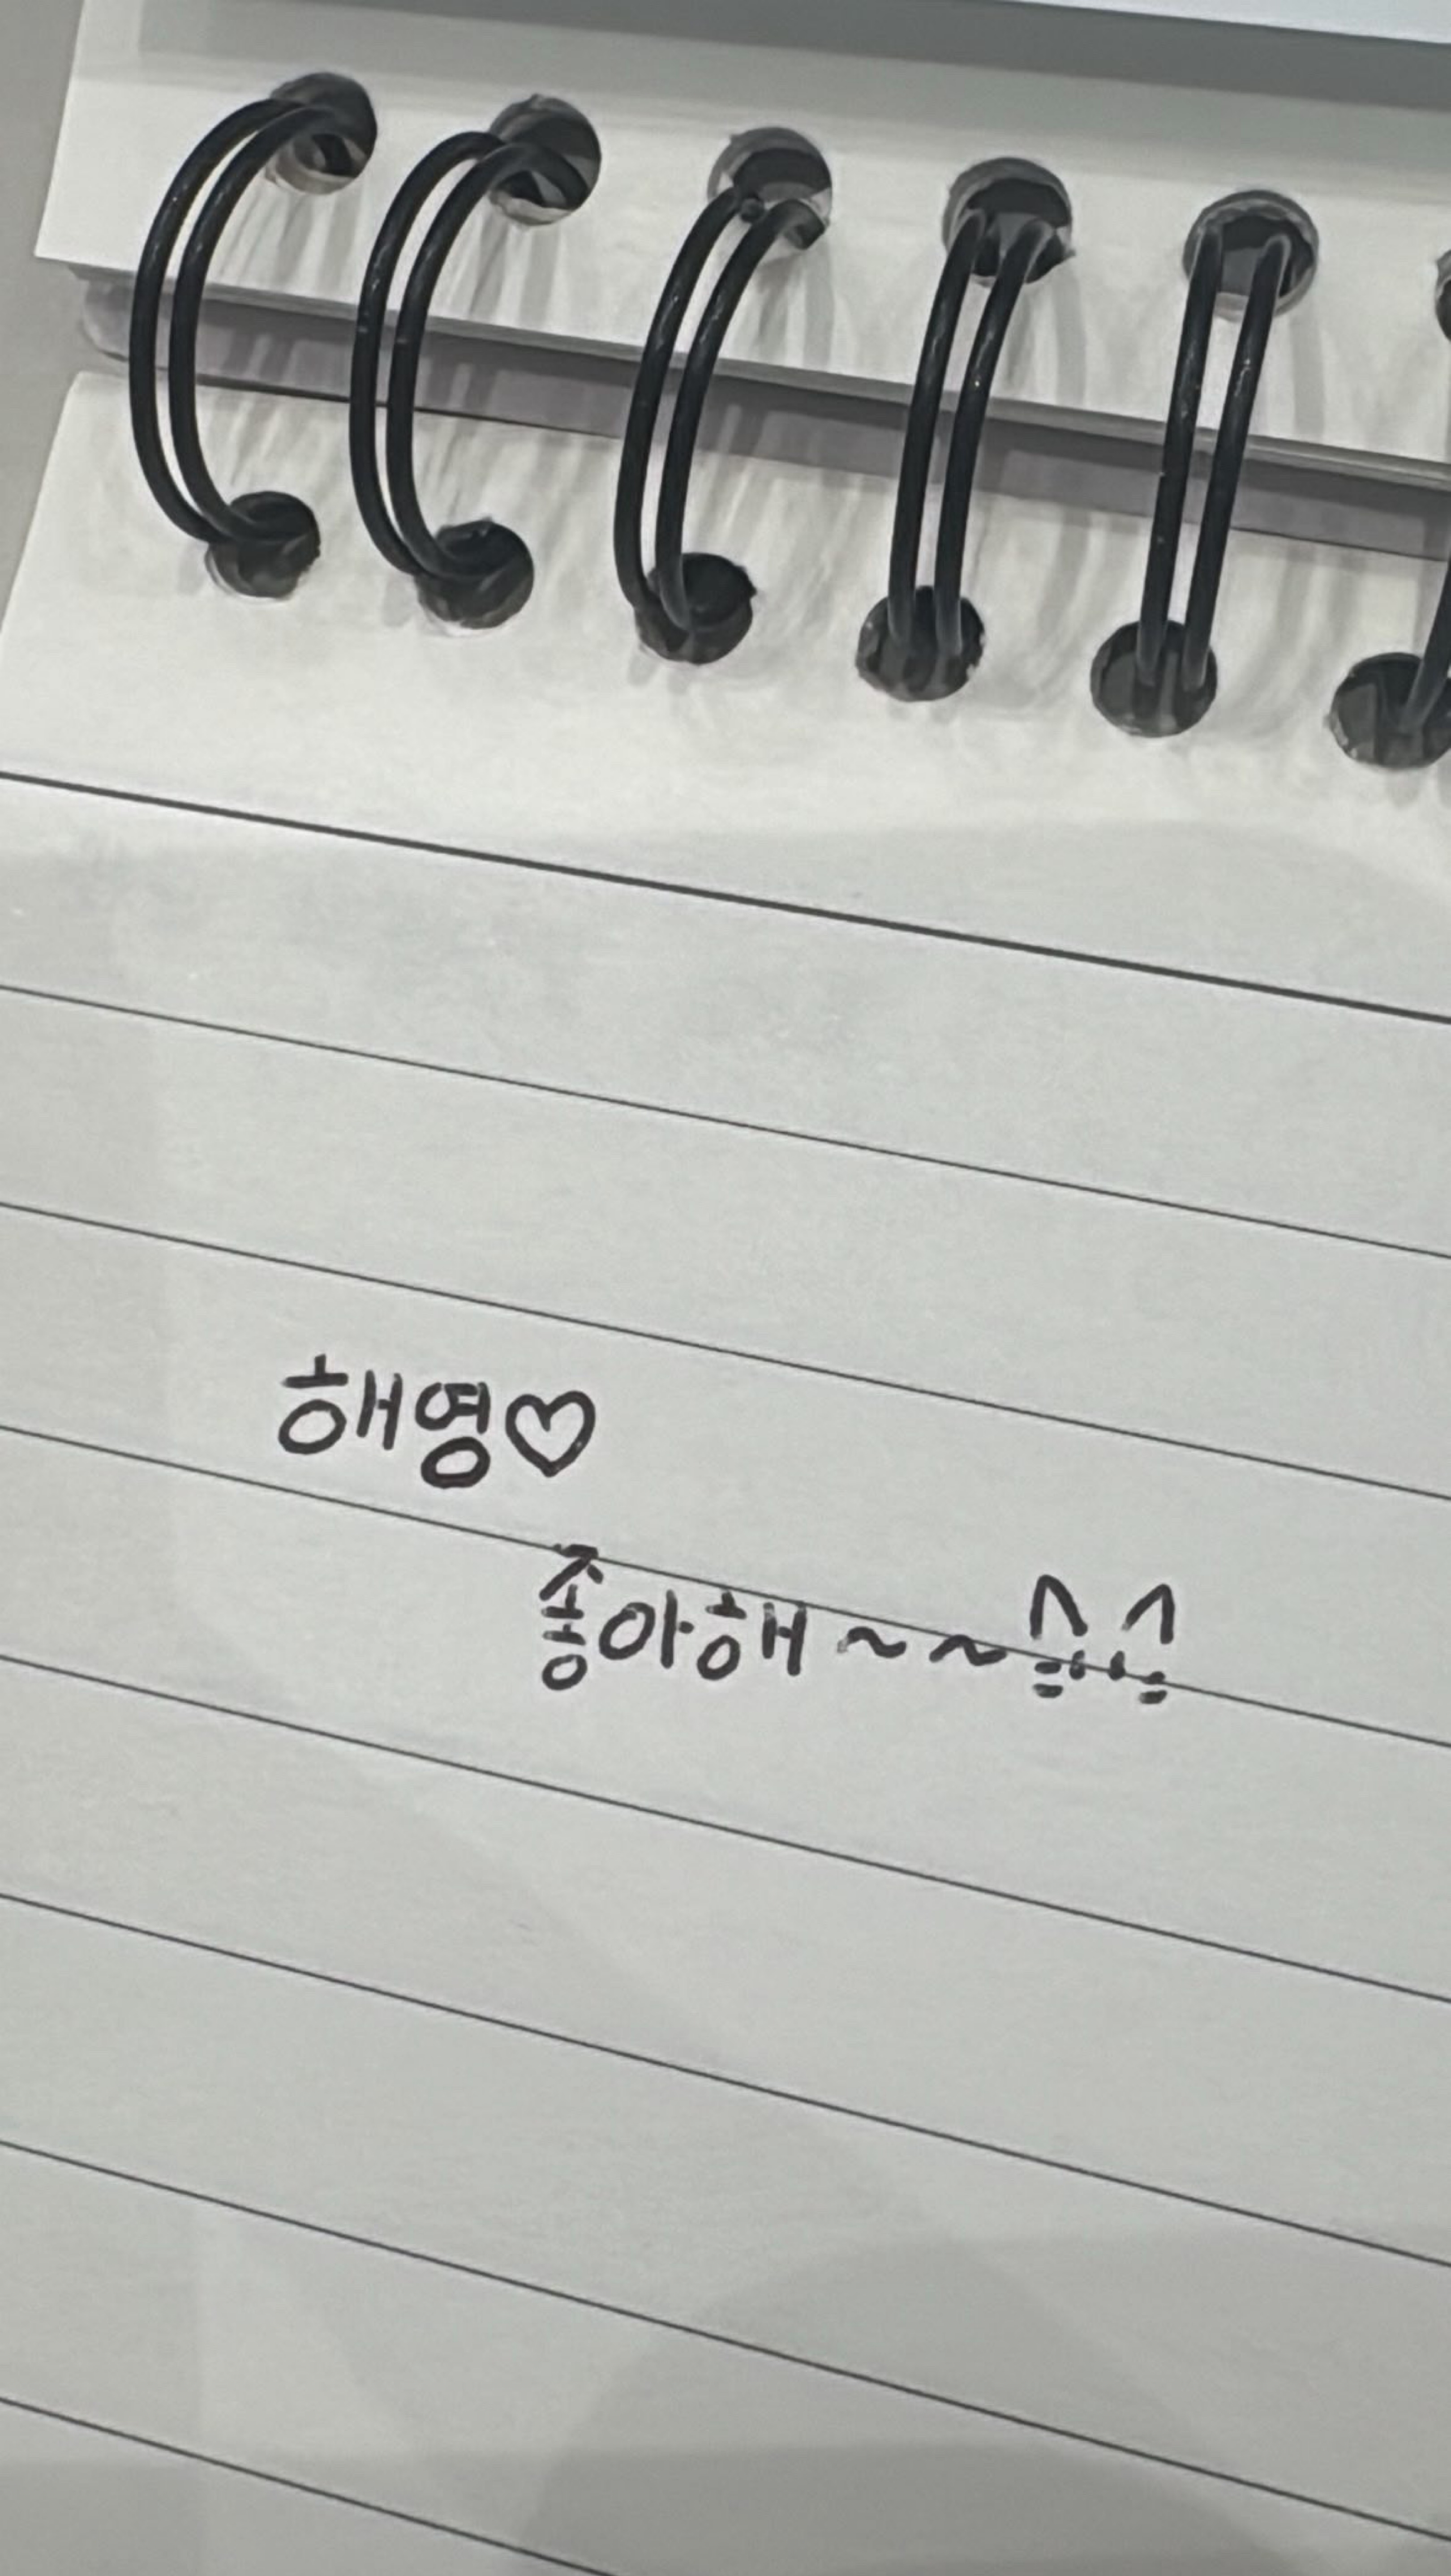 해영♡
좋아해~~